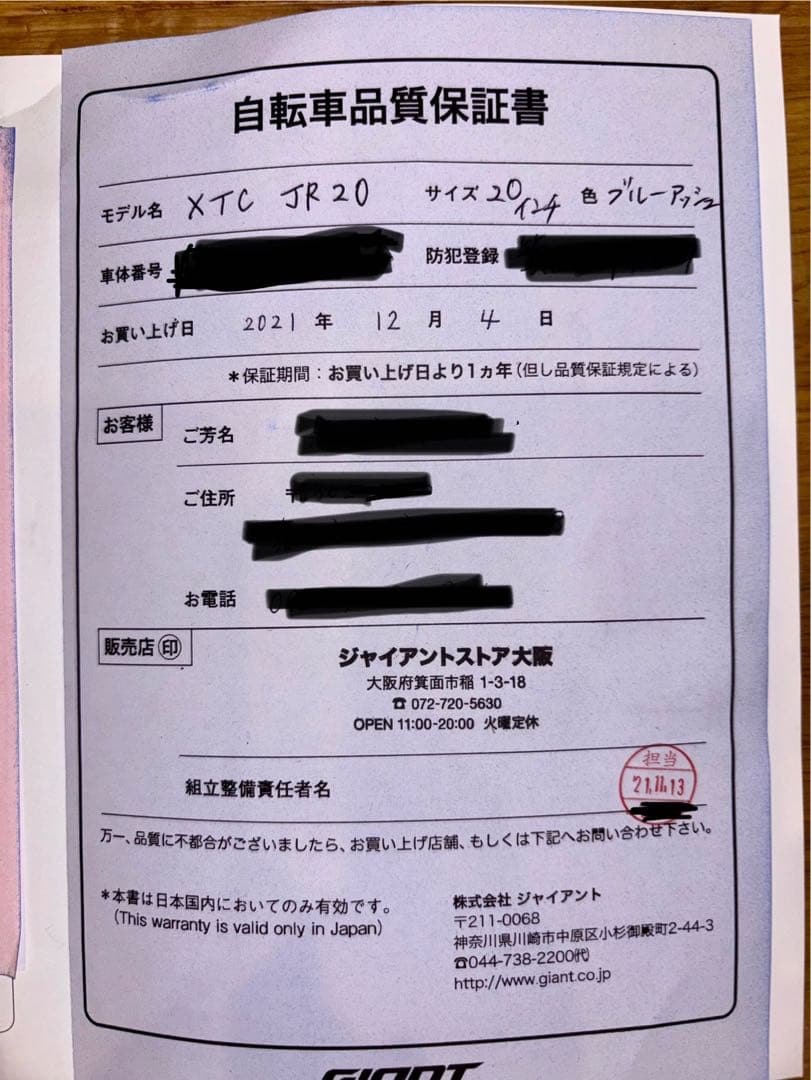 自転車品質保証書
モデル名 XTC JR20 サイズ 20インチ 色 ブルーアッシュ
車体番号 防犯登録
お買い上げ日 2021 年 12 月 4 日
*保証期間：お買い上げ日より1ヵ年（但し品質保証規定による）
お客様
ご芳名
ご住所
お電話
販売店 印
ジャイアントストア大阪
大阪府箕面市稲 1-3-18
☎ 072-720-5630
OPEN 11:00-20:00 火曜定休
組立整備責任者名
担当
'21.11.13
万一、品質に不都合がございましたら、お買い上げ店舗、もしくは下記へお問い合わせ下さい。
*本書は日本国内においてのみ有効です。
(This warranty is valid only in Japan)
株式会社 ジャイアント
〒211-0068
神奈川県川崎市中原区小杉御殿町2-44-3
☎044-738-2200㈹
http://www.giant.co.jp
GIANT